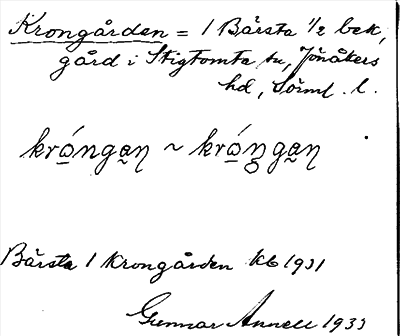 Krongården = 1 Bårsta 1/2 bek,
gård i Stigtomta sn, Jönåkers
hd, Sörml. l.
krǫ́ngan ~ krǫ́ngan
Bårsta 1 Krongården Kb 1931
Gunnar Annell 1933